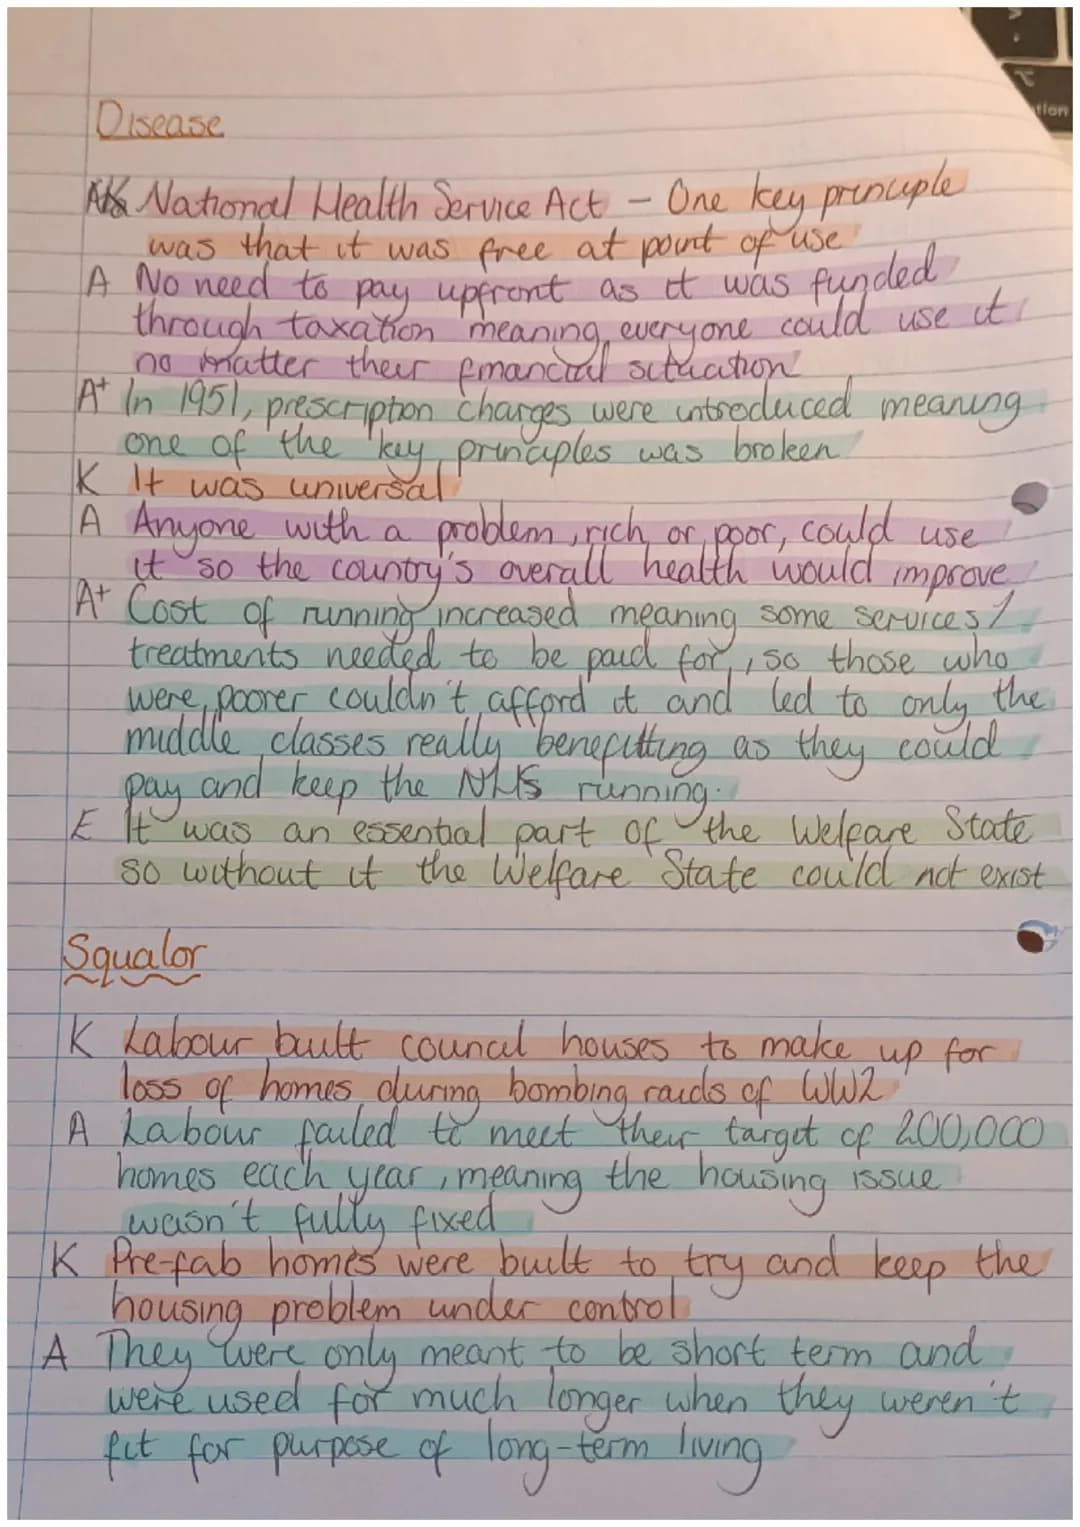 Disease
K National Health Service Act - One key principle
was that it was free at point of use
A No need to pay upfront as it was funded
through taxation meaning everyone could use it
no matter their financial situation
A+ In 1951, prescription charges were introduced meaning
one of the key principles was broken
K It was universal
A Anyone with a problem, rich or poor, could use
it so the country's overall health would improve
A+ Cost of running increased meaning some services/
treatments needed to be paid for, so those who
were poorer couldn't afford it and led to only the
middle classes really benefitting as they could
pay and keep the NHS running.
E It was an essential part of the Welfare State
so without it the Welfare State could not exist
Squalor
K Labour built council houses to make up for
loss of homes during bombing raids of WW2
A Labour failed to meet their target of 200,000
homes each year, meaning the housing issue
wasn't fully fixed
K Pre-fab homes were built to try and keep the
housing problem under control
A They were only meant to be short term and
were used for much longer when they weren't
fit for purpose of long-term living